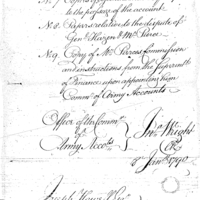 to the preface of the account
No. 8. Papers relative to the dispute of
Genl. Hazen & Mr. Pierce.
No. 9. Copy of Mr. Pierces Commission
and instructions from the Superintt
of Finance upon appointing him
Commr. of Army Accounts
Office of the Commr
of
Army Accots.
Jno. Wright
Clk
Jany. 1790
Joseph Howell